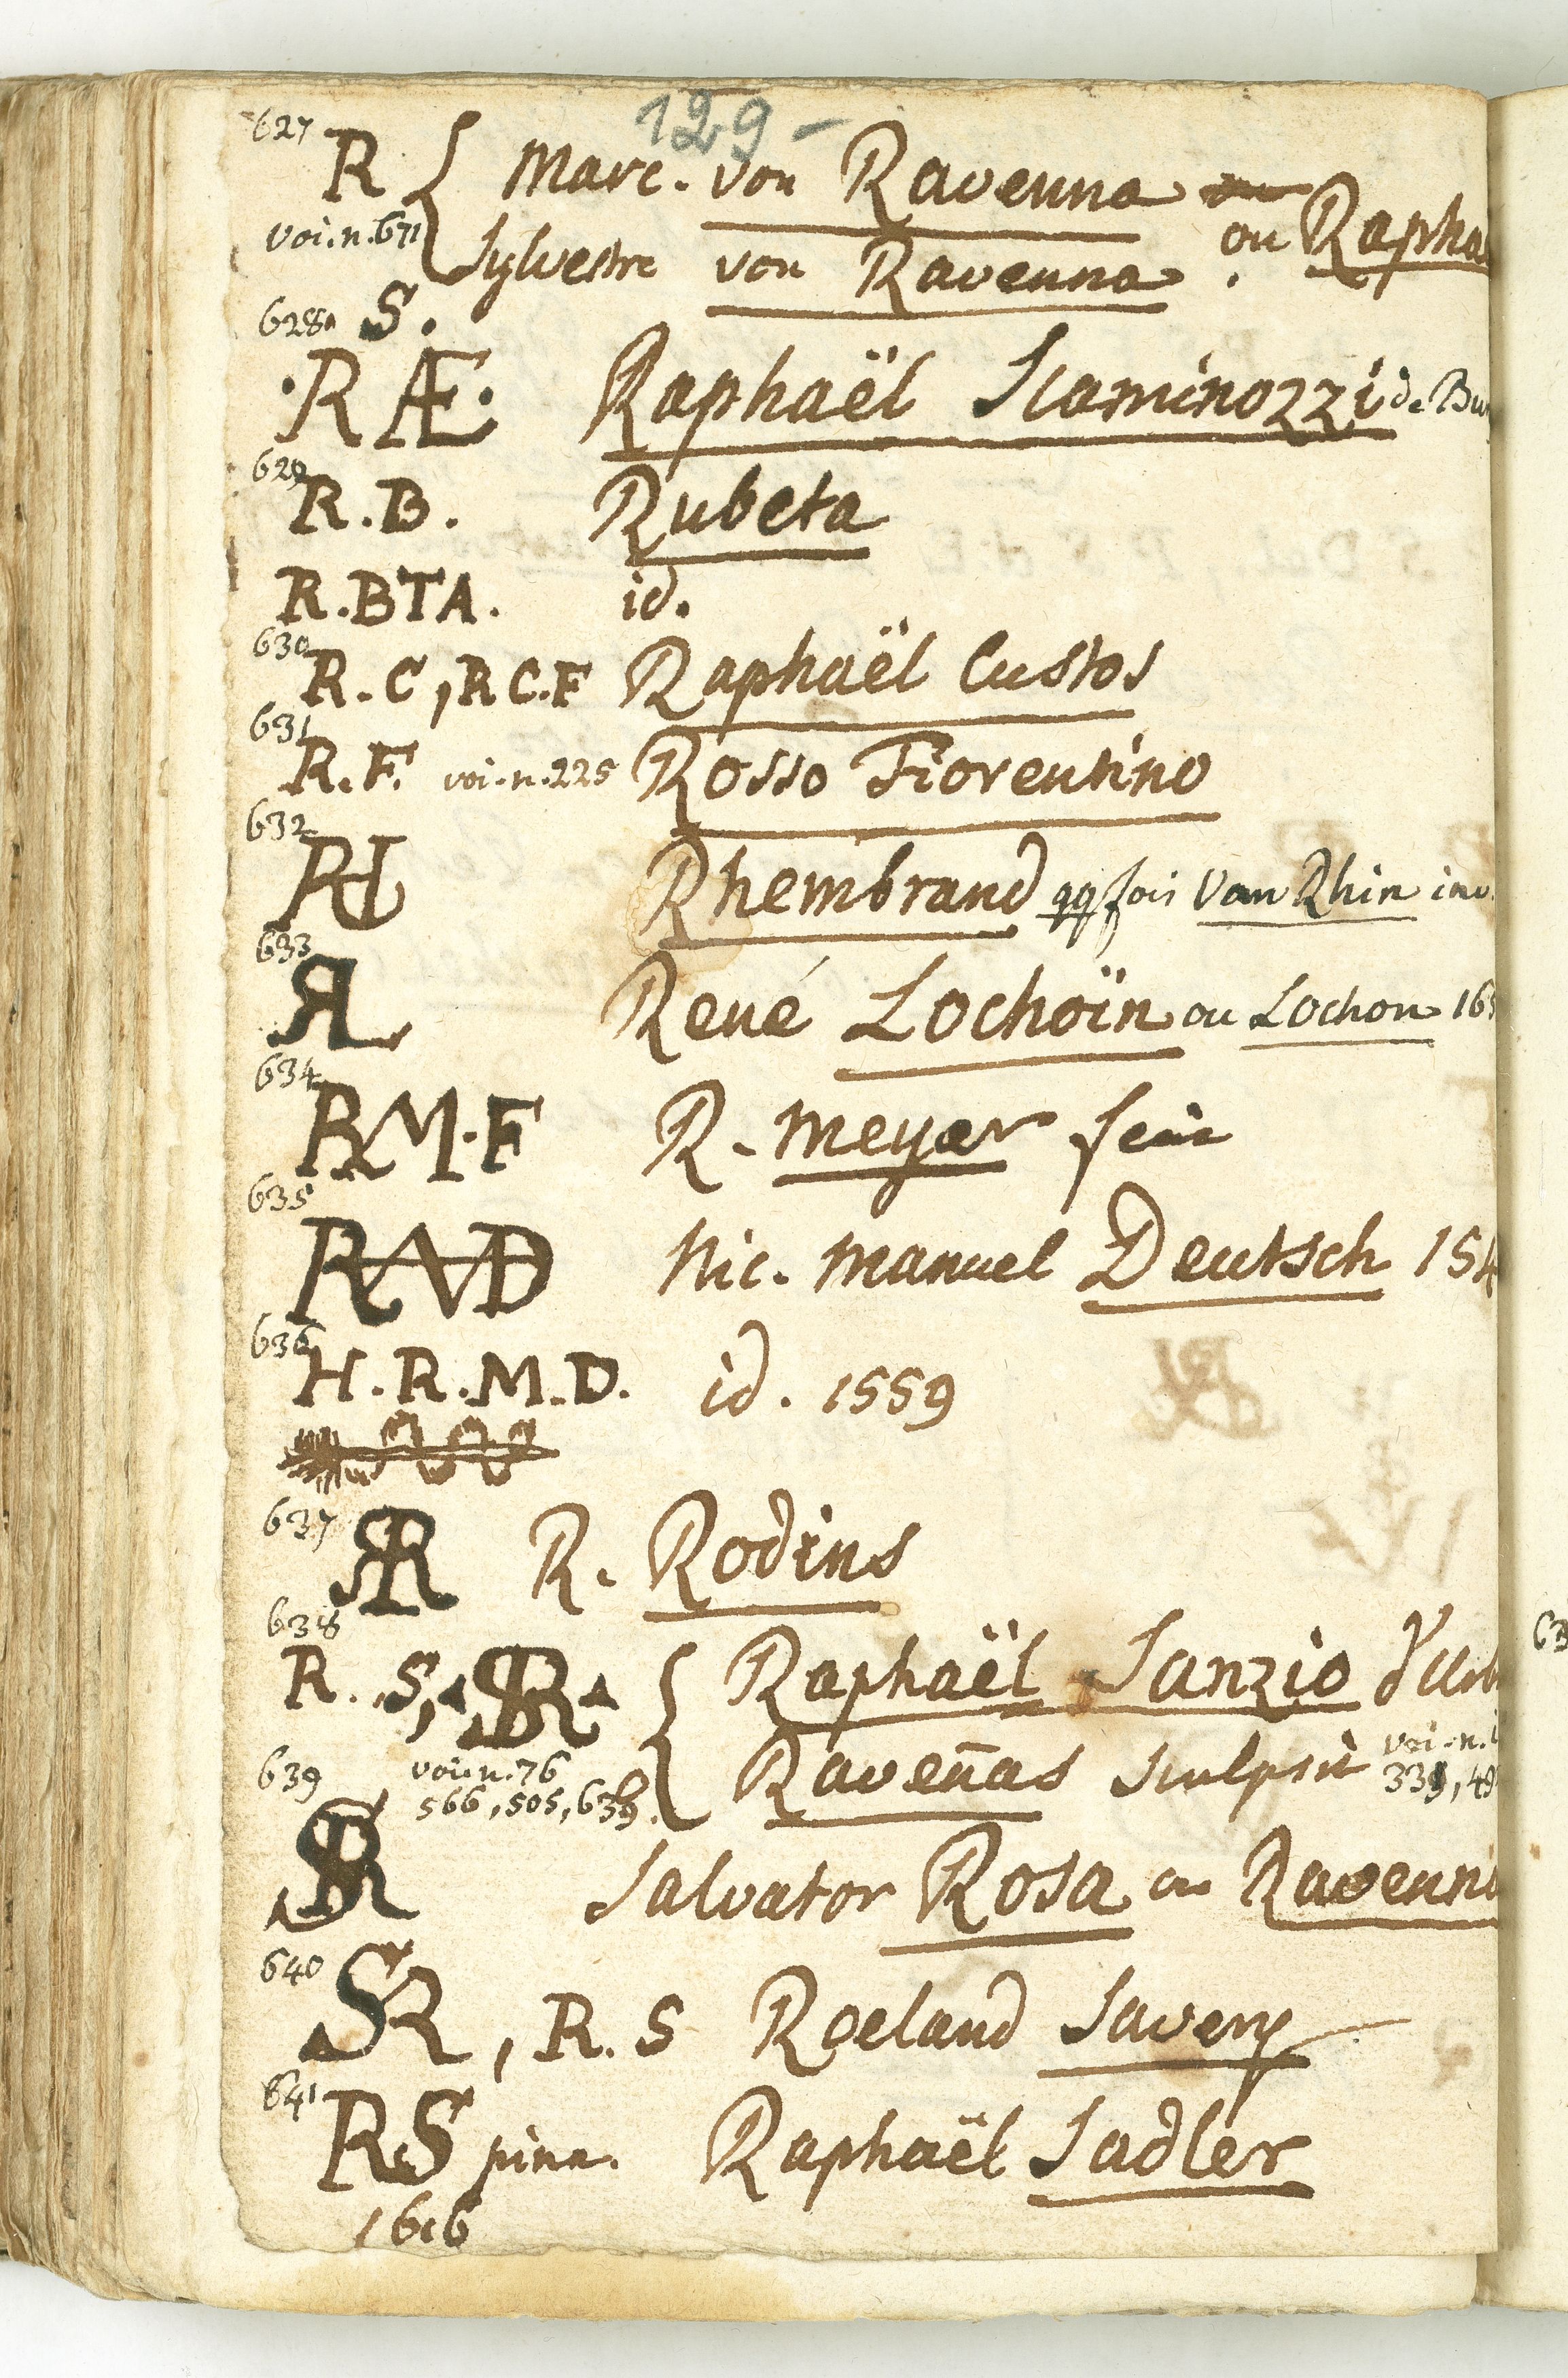 129 -
627 R { Marc. von Ravenna
voi. n. 671 Sylvestre von Ravenna. ou Rapha
628 S.
·RÆ· Raphaël Scaminozzi de Bu
629 R.B. Rubeta
R.BTA. id.
630 R.C, RC.F Raphaël Custos
631 R.F. voi. n. 225 Rosso Fiorentino
632 RH Rhembrand qqfois Van Rhin inv.
633 RL René Lochoïn ou Lochon 16
634 RM.F R. Meyer fecit
635 RMD Nic. Manuel Deutsch 154
636 H.R.M.D. id. 1559
637 RR R. Rodins
638 R. S, SR { Raphaël Sanzio d'Urb
voi. n. 76 Raveñas sculpsit voi. n.
566, 505, 639.
639 SR Salvator Rosa ou Ravenn
640 SR, R.S Roeland Savery
641 RS pinx. Raphaël Sadler
1616